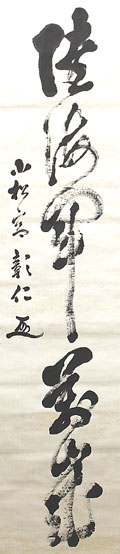 陸海軍萬歳
小松宮彰仁書